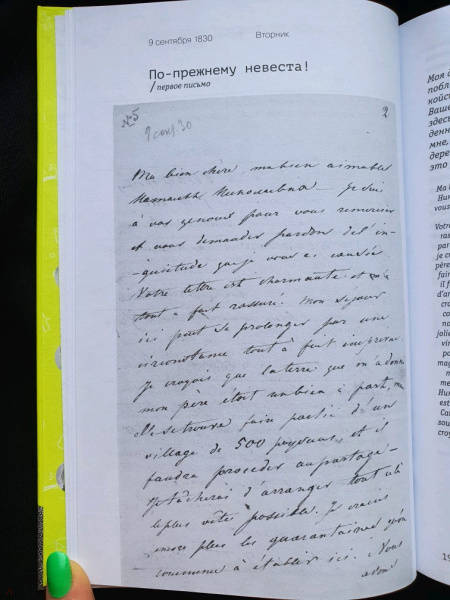 9 сентября 1830 Вторник
По-прежнему невеста!
/первое письмо
№5
9 сент. 30
2
Ma bien chère ma bien aimable
Наталья Николаевна — je suis
à vos genoux pour vous remercier
et vous demander pardon de l'in-
-quiétude que je vous ai causée
Votre lettre est charmante et
tout à fait rassuré. Mon séjour
ici peut se prolonger par une
circonstance tout à fait imprévue
Je croyais que la terre que m'a donné
mon père était un bien à part,
se trouve faire partie d'un
village de 500 paysans, et il
faudra procéder au partage —
Je tâcherai d'arranger tout cela
le plus vite possible. Je crains
encore plus les quarantaines qu'on
commence à établir ici. Nous
avons
Моя д
побл
койст
Ваше
здесь
денн
мне,
дере
это